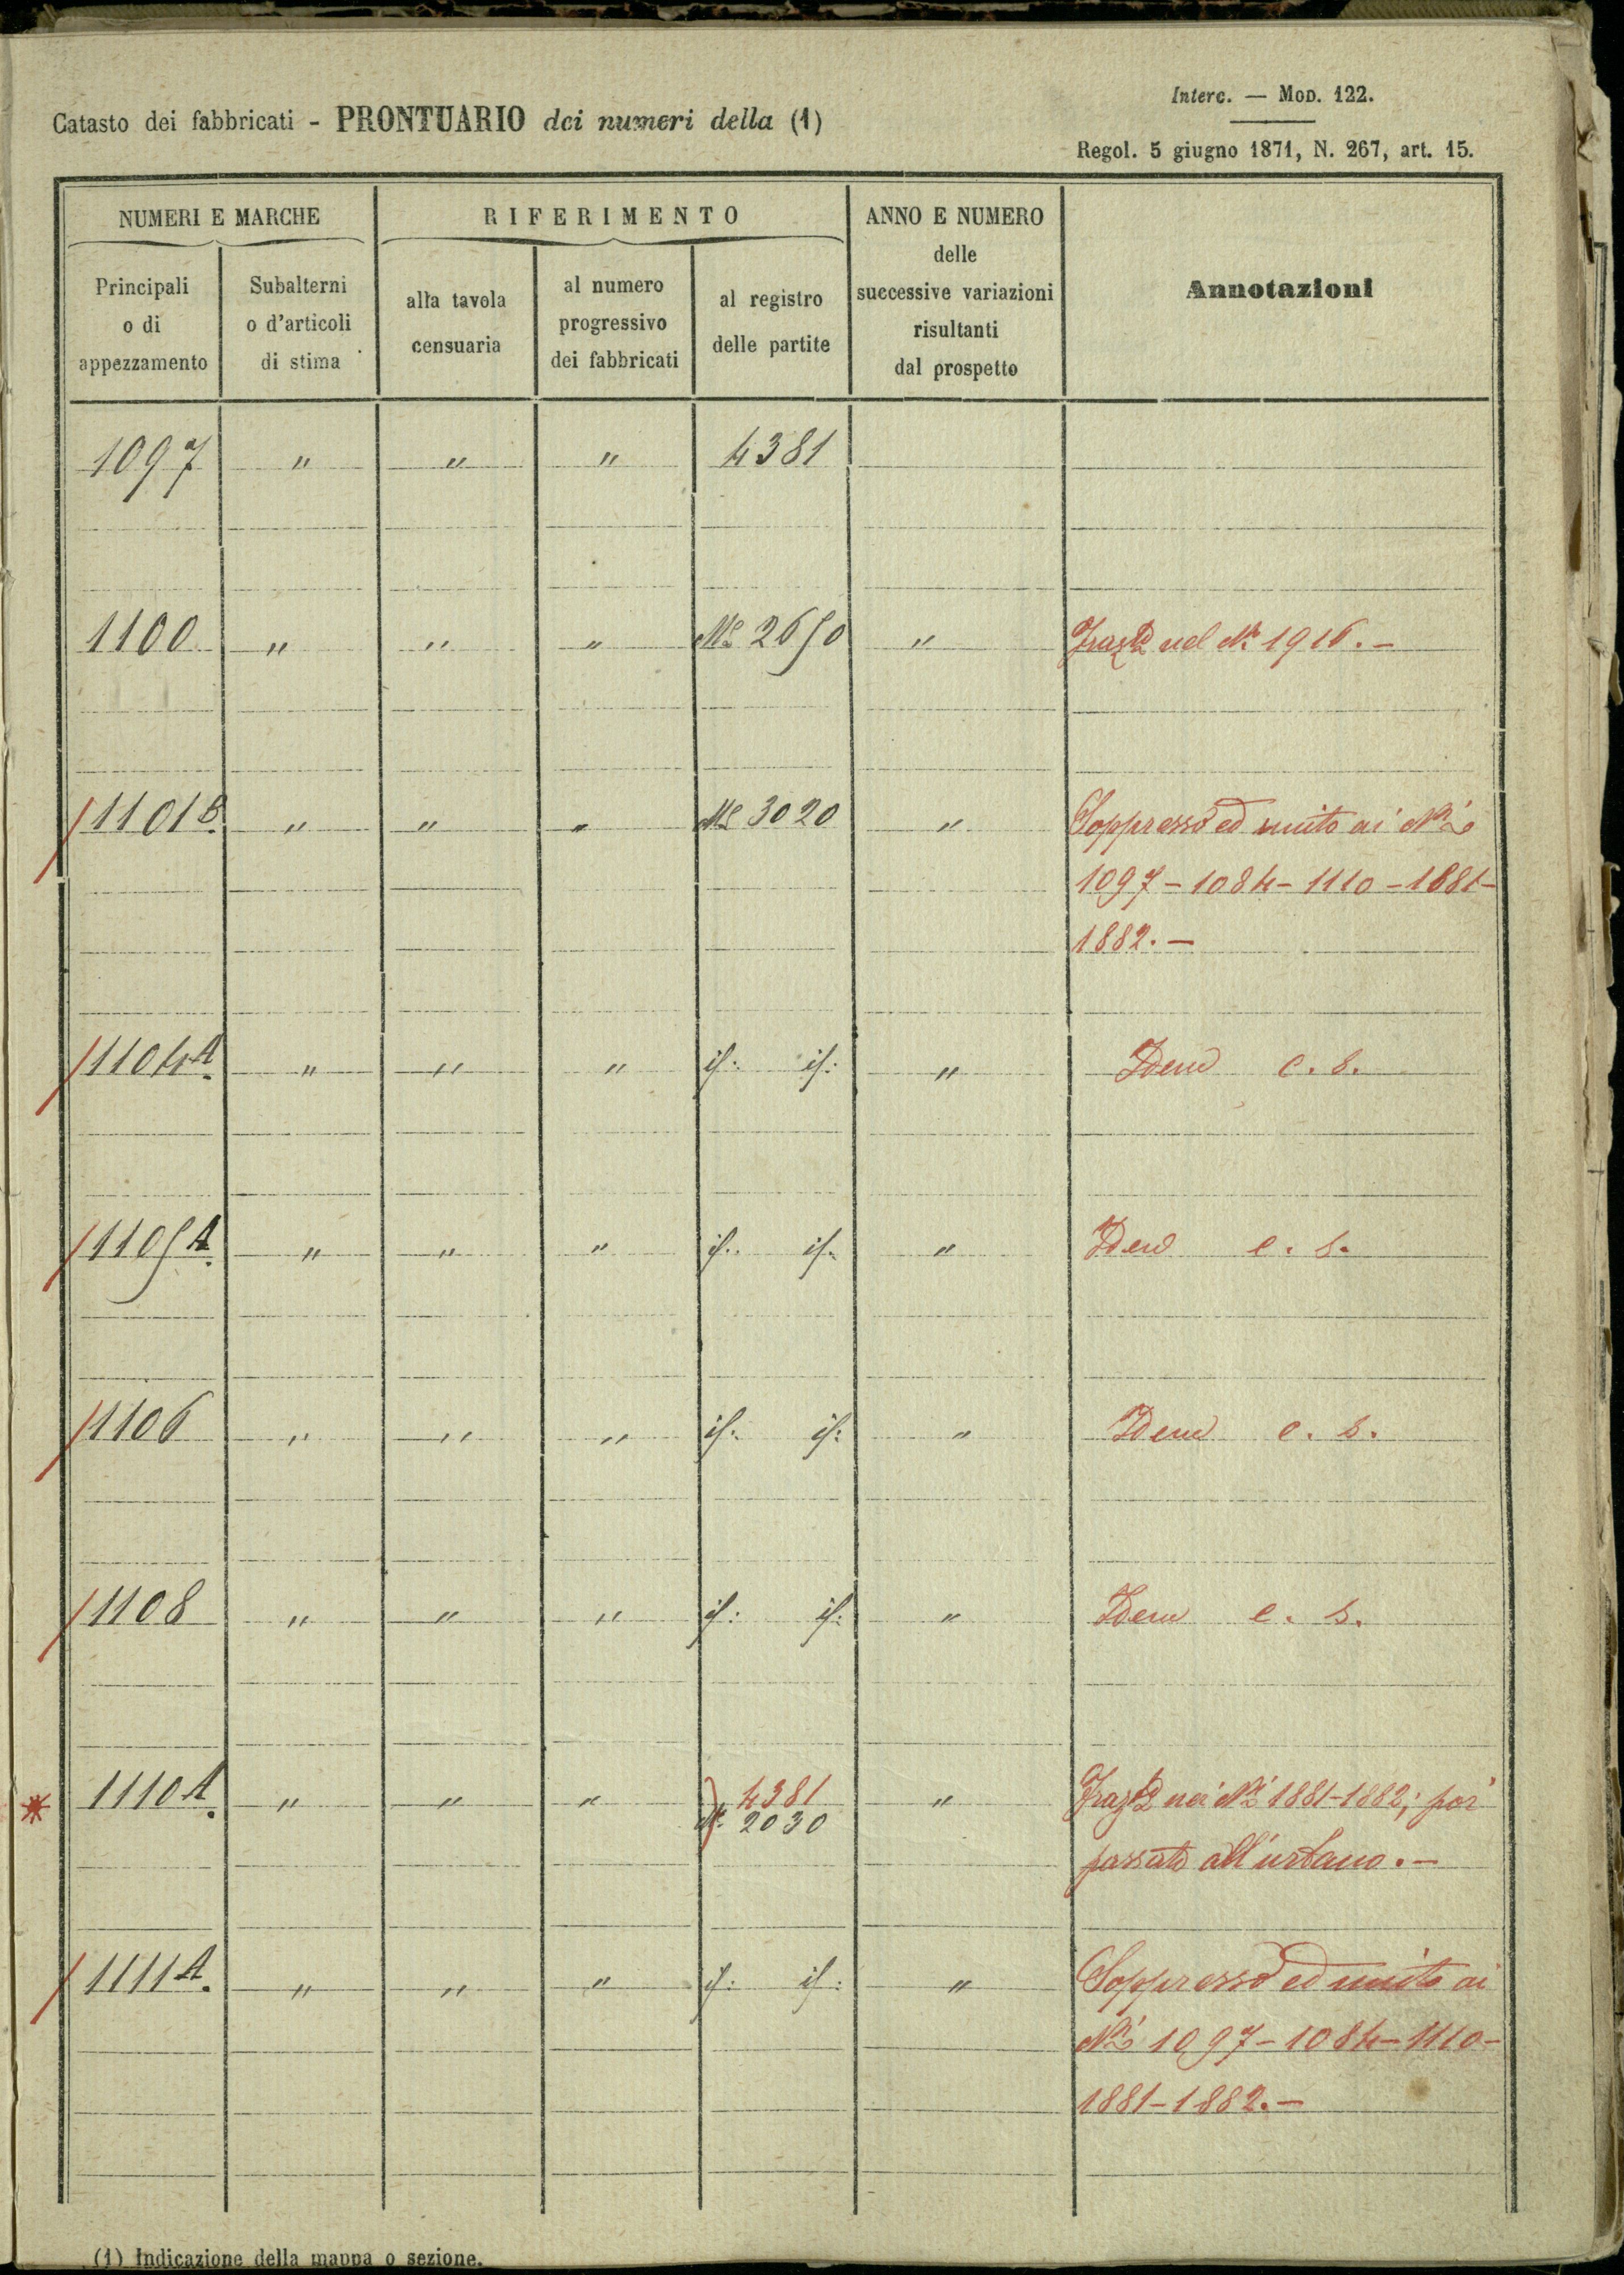 Interc. — Mod. 122.
Catasto dei fabbricati - PRONTUARIO dei numeri della (1)
Regol. 5 giugno 1871, N. 267, art. 15.
NUMERI E MARCHE RIFERIMENTO ANNO E NUMERO delle successive variazioni risultanti dal prospetto Annotazioni
Principali o di appezzamento Subalterni o d'articoli di stima alla tavola censuaria al numero progressivo dei fabbricati al registro delle partite
1097 " " " 4381
1100 " " " 2650 " Fraz.to nel N.° 1916. -
1101 B. " " " 3020 " Soppresso ed unito ai N.i
1097 - 1084 - 1110 - 1881 -
1882. -
1104 A. " " " id: id: " Idem c. s.
1105 A. " " " id: id: " Idem c. s.
1106 " " " id: id: " Idem c. s.
1108 " " " id: id: " Idem c. s.
* 1110 A. " " " 4381 " Fraz.to nei N.i 1881-1882; poi
2030
passato all'urbano. -
1111 A. " " " id: id: " Soppresso ed unito ai
N.i 1097 - 1084 - 1110 -
1881 - 1882. -
(1) Indicazione della mappa o sezione.